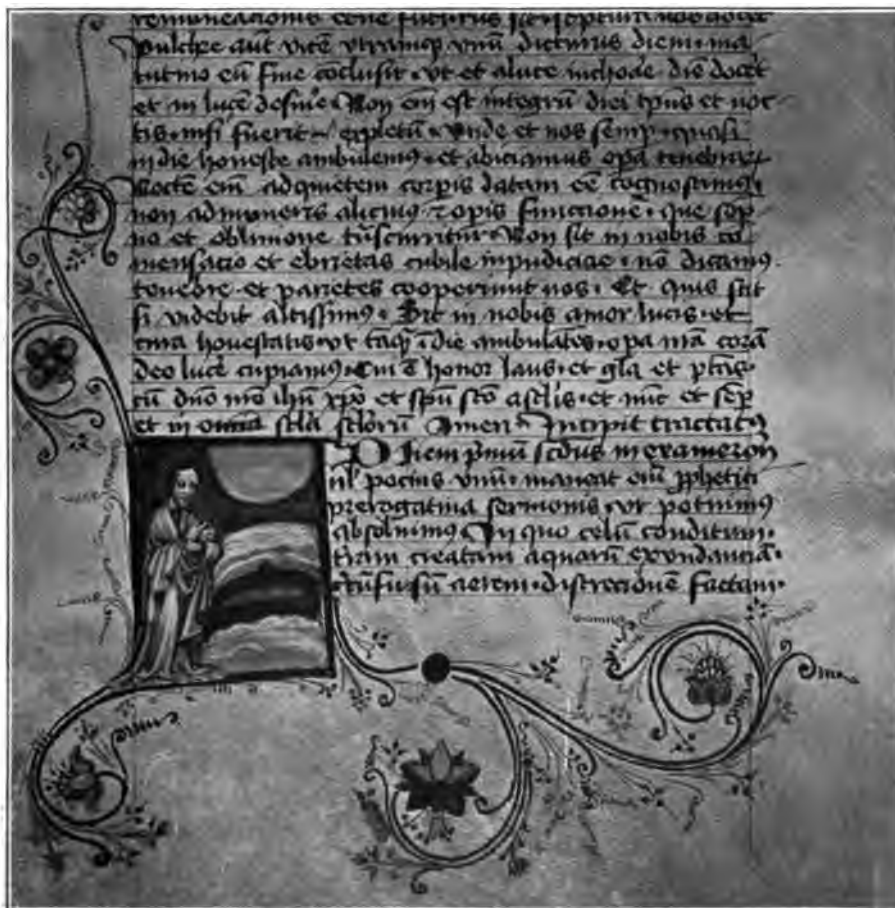 remuneracionis
Pulchre aut vicē vtramq vnū dicturus diem· ma
tutino eū fine cōclusit· vt et a luce inchoare diē docet
et in lucē desinē· Non em̄ est integrū diei tp̄us et noc
tis· nisi fuerit expletū· Vnde et nos semp quasi
in die honeste ambulemꝰ· et abiciamus opa tenebrar
Noctē em̄ ad quietem corpis datam eē cognoscimꝰ·
non ad muneris alicuius ⁊ opis functionē· que sop
no et obliuione t̄nscurritur· Non sit in nobis co
mensacio et ebrietas cubile inpudicicie· nō dicamꝰ
tenebre et parietes cooperiunt nos· Et quis scit
si videbit altissimus· Sit in nobis amor lucis· et
cura honestatis· vt tāq̄ ī die ambulātes· opa n̄ra corā
deo lucē cupiamꝰ· Cui ē honor laus· et gl̄a et p̄tās·
cū dn̄o nr̄o ih̄u xp̄o et sp̄u sc̄o a sc̄lis· et nūc et sep̄
et in omnia sc̄la sc̄lorū Amen· Incipit tractatꝰ
Diem p̄mū sc̄dus in exameron
ul̄ pocius vnū· maneat em̄ p̄phetici
prerogatiua sermonis· vt potuimꝰ
absoluimꝰ In quo celū conditum·
t̄ram creatam aquarū exundanciā·
aerem· discrecionē factam·